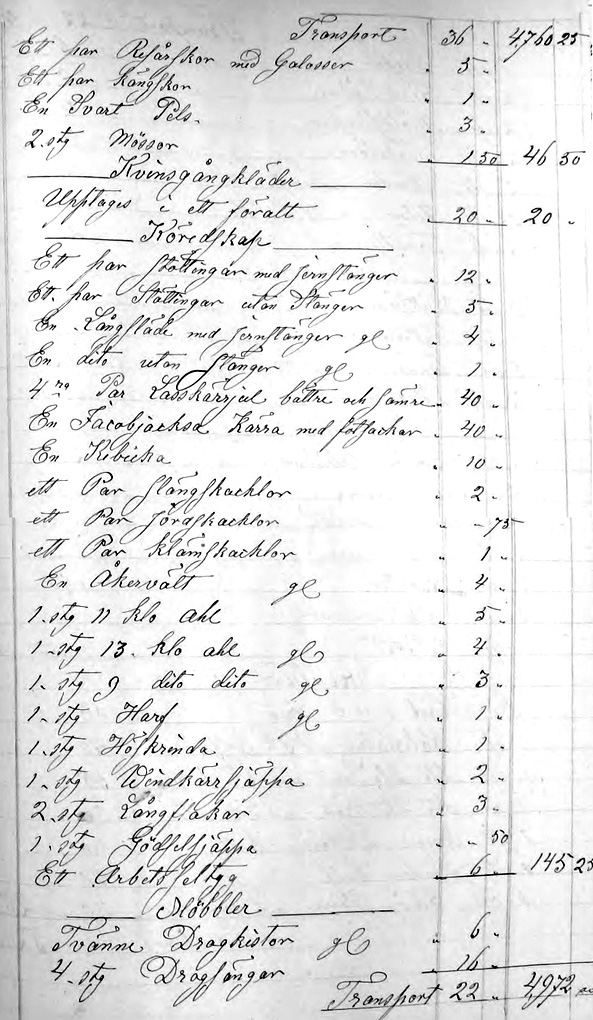 Transport 36 " 4760 25
Ett par Resårskor med Galosser " 5 "
Ett par Kängskor " 1 "
En Svart Pels. " 3 "
2. stg Mössor " 1 50 46 50
Kvinsgångkläder
Upptages i ett föralt " 20 " 20 "
Köredskap
Ett par Stöttingar med Jernstänger " 12 "
Ett. par Stöttingar utan Stänger " 5 "
En Långsläde med Jernstänger gl " 4 "
En dito utan Stänger gl " 1 "
4 ra Par Lasskärrjul bättre och sämre " 40 "
En Jacobjacksa Kärra med fotsackar " 40 "
En Kibicka " 10 "
ett Par Slängskacklor " 2 "
ett Par Jordskacklor " " 75
ett Par Klämskacklor " 1 "
En Åkervält gl " 4 "
1. stg 11 klo ahl " 5 "
1. stg 13. klo ahl gl " 4 "
1. stg 9 dito dito gl " 3 "
1. stg Harf gl " 1 "
1. stg Höskrinda " 1 "
1. stg Windkärrsjäppa " 2 "
2. stg Långflakar " 3 "
1. stg Gödselsjäppa " " 50
Ett Arbetsseltyg " 6 " 145 25
Möbbler
Tvänne Dragkistor gl " 6 "
4. stg Dragsängar " 16 "
Transport 22 " 4972